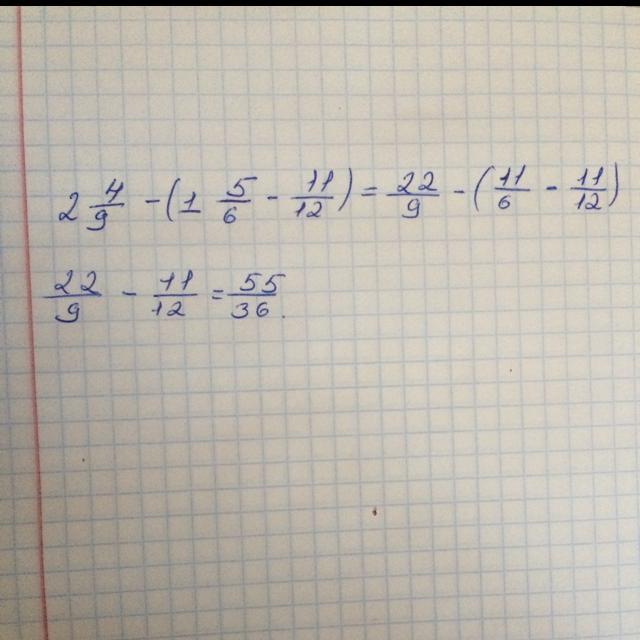 2 4/9 - (1 5/6 - 11/12) = 22/9 - (11/6 - 11/12)
22/9 - 11/12 = 55/36.